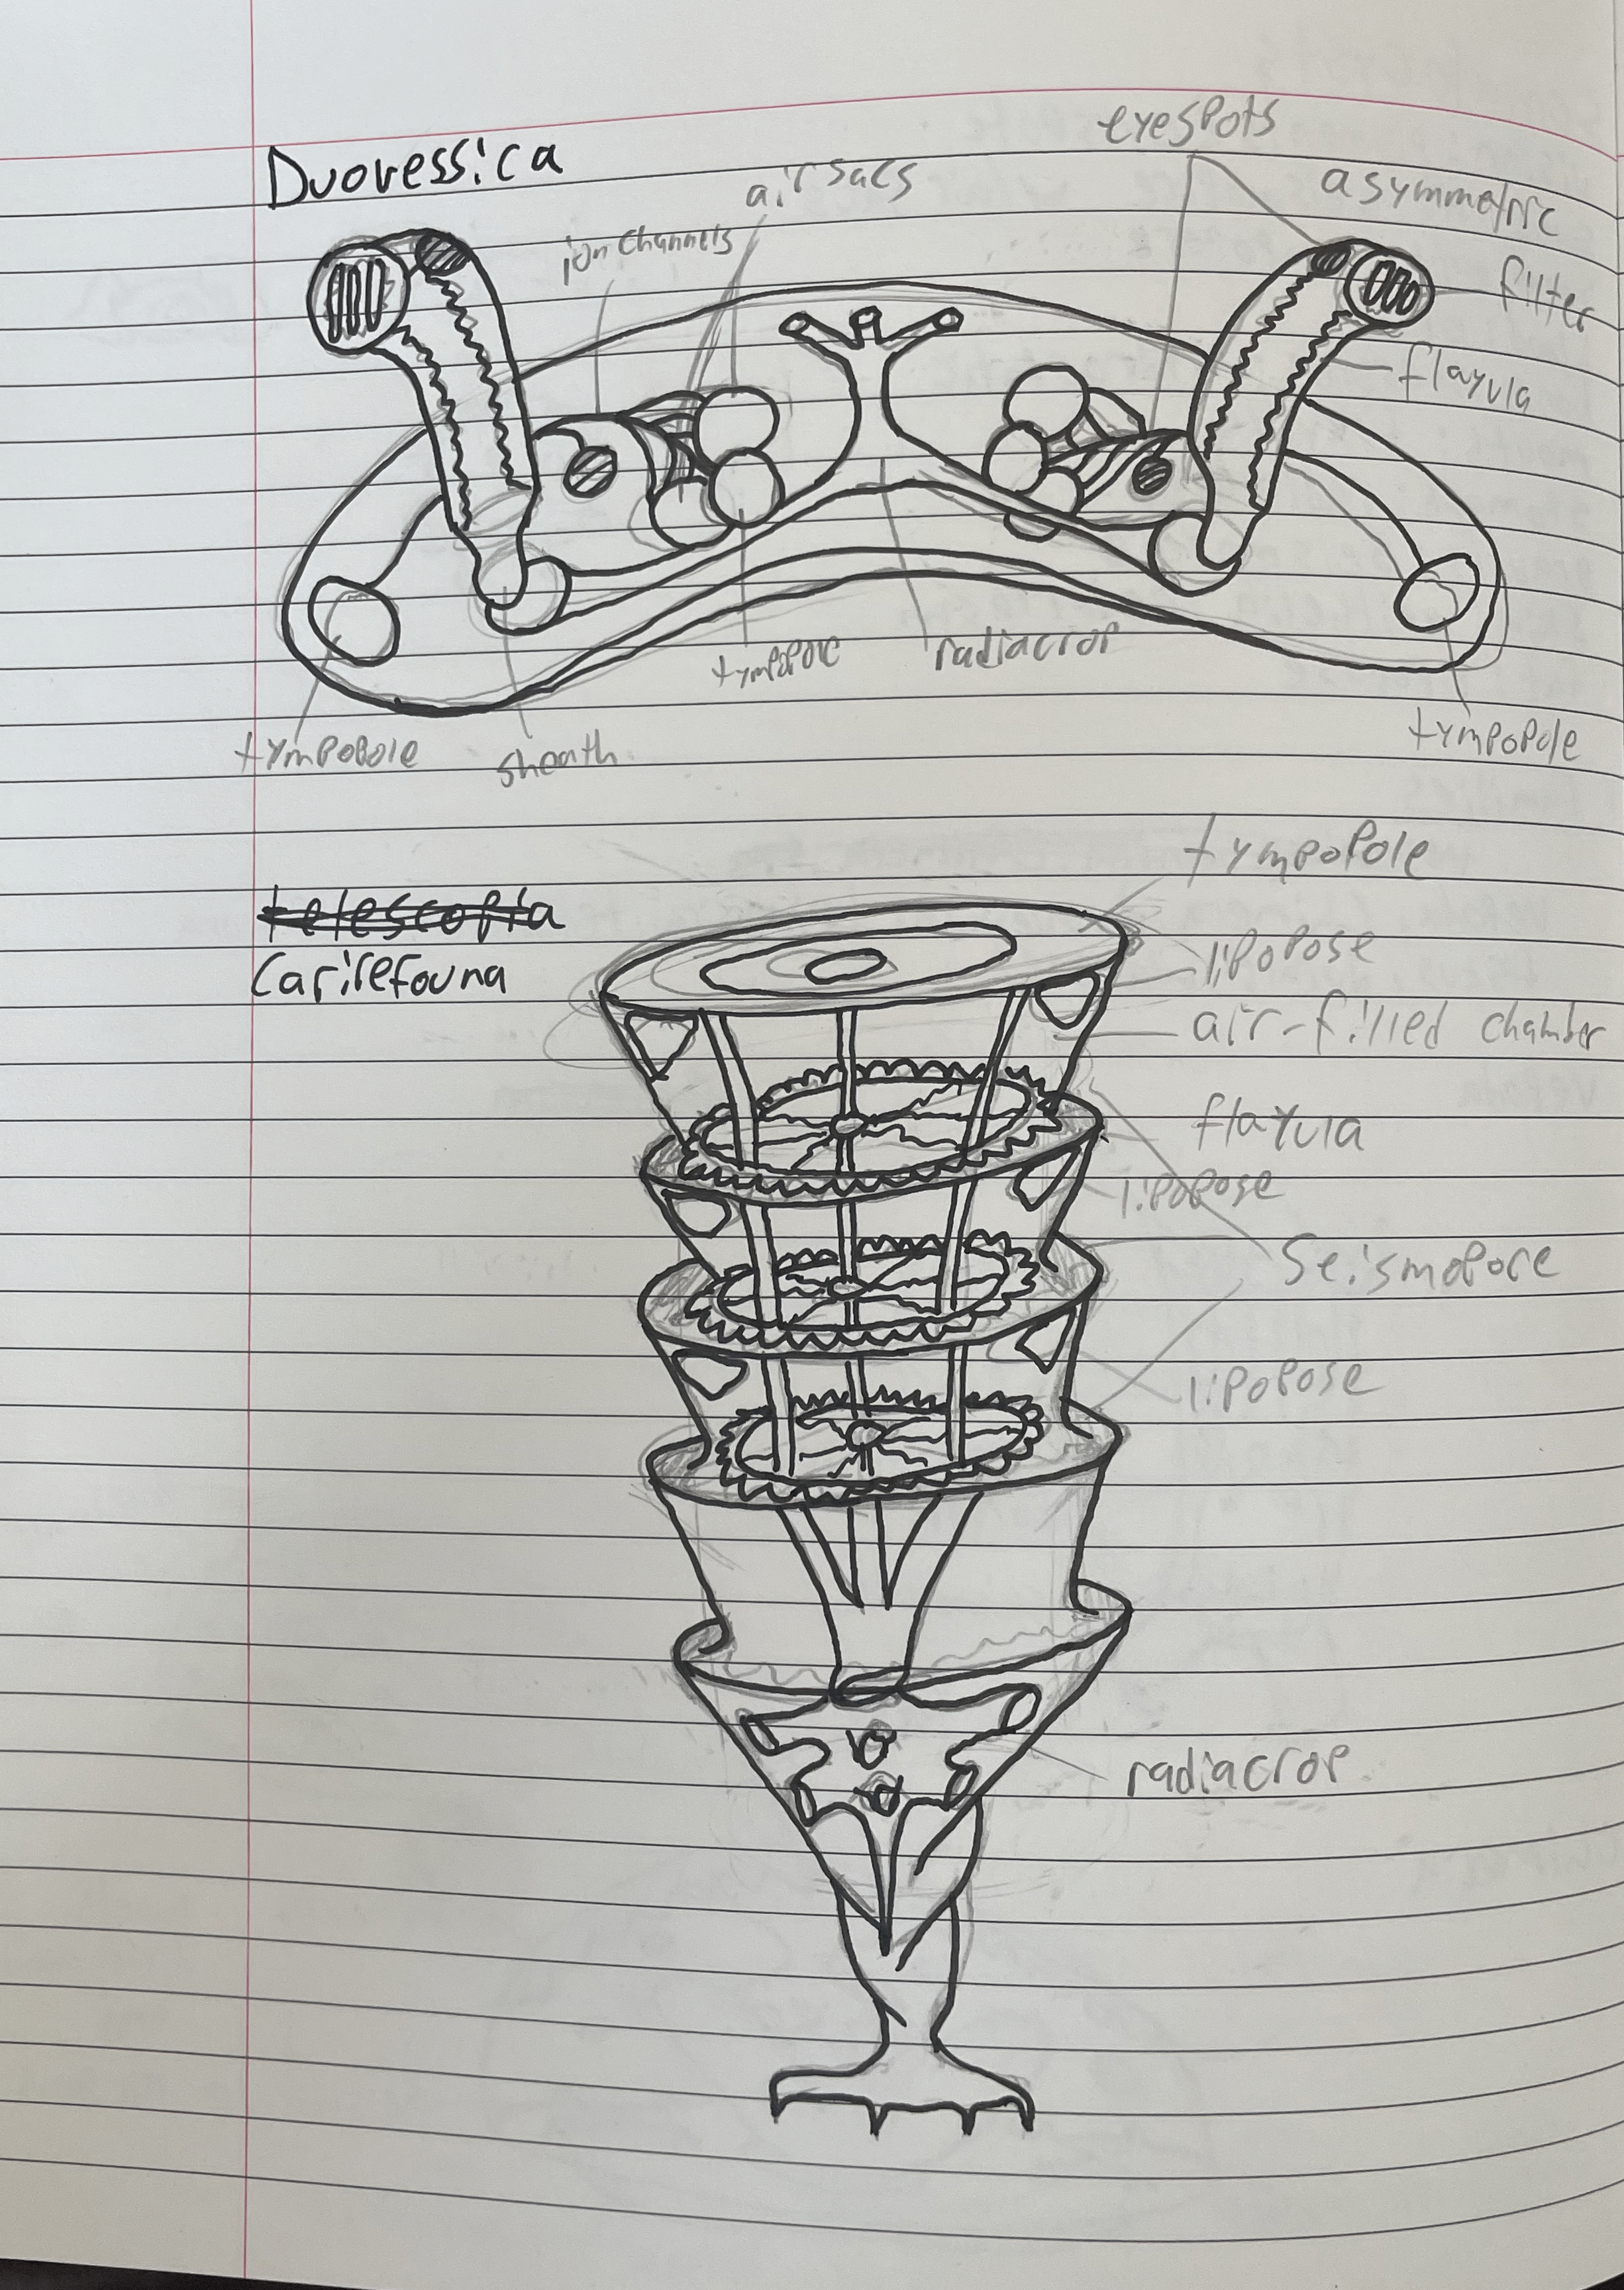 eyespots
Duovessica
air sacs
asymmetric
ion channels
filter
flayula
tympopore
radiacrop
tympopole
sheath
tympopole
tympopole
telescopia
lipopose
Carirefouna
air-filled chamber
flayula
lipopose
Seismopore
lipopose
radiacrop